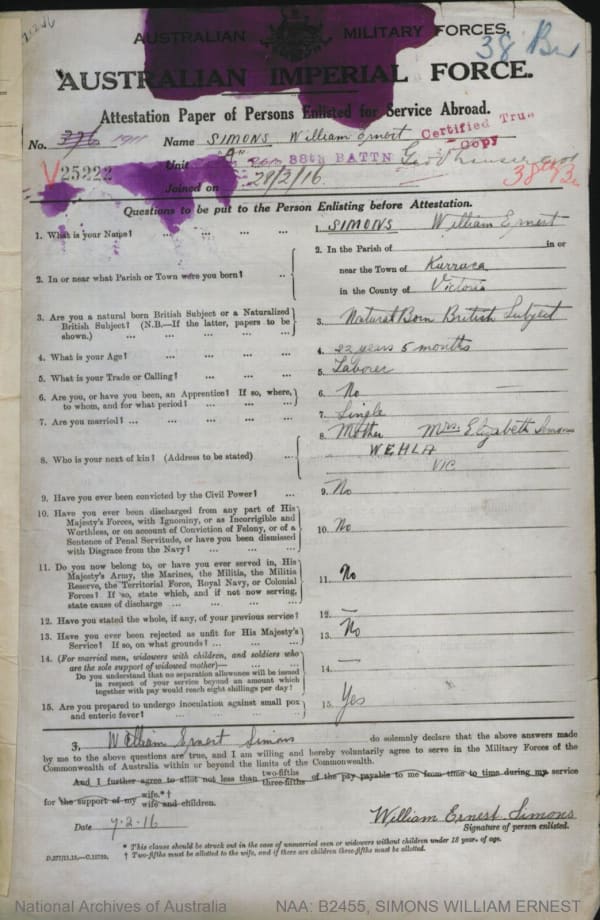 AUSTRALIAN MILITARY FORCES.
38 Bn
AUSTRALIAN IMPERIAL FORCE.
Attestation Paper of Persons Enlisted for Service Abroad.
No. 1911 Name SIMONS William Ernest Certified True Copy
V25222 Unit "A" 38th BATTN
Joined on 28/2/16.
Questions to be put to the Person Enlisting before Attestation.
1. What is your Name? ... ... ... ... 1. SIMONS William Ernest
2. In or near what Parish or Town were you born? ... 2. In the Parish of in or
near the Town of Kurraca
in the County of Victoria
3. Are you a natural born British Subject or a Naturalized
British Subject? (N.B.—If the latter, papers to be
shown.) ... ... ... ... 3. Natural Born British Subject
4. What is your Age? ... ... ... ... 4. 22 years 5 months
5. What is your Trade or Calling? ... ... ... 5. Laborer
6. Are you, or have you been, an Apprentice? If so, where,
to whom, and for what period? ... ... ... 6. No
7. Are you married? ... ... ... ... ... 7. Single
8. Who is your next of kin? (Address to be stated) ... 8. Mother Mrs. Elizabeth Simons
WEHLA
VIC
9. Have you ever been convicted by the Civil Power? ... 9. No
10. Have you ever been discharged from any part of His
Majesty's Forces, with Ignominy, or as Incorrigible and
Worthless, or on account of Conviction of Felony, or of a
Sentence of Penal Servitude, or have you been dismissed
with Disgrace from the Navy? ... ... ... 10. No
11. Do you now belong to, or have you ever served in, His
Majesty's Army, the Marines, the Militia, the Militia
Reserve, the Territorial Force, Royal Navy, or Colonial
Forces? If so, state which, and if not now serving,
state cause of discharge ... ... ... ... 11. No
12. Have you stated the whole, if any, of your previous service? 12. —
13. Have you ever been rejected as unfit for His Majesty's
Service? If so, on what grounds? ... ... ... 13. No
14. (For married men, widowers with children, and soldiers who
are the sole support of widowed mother)— ... ...
Do you understand that no separation allowance will be issued
in respect of your service beyond an amount which
together with pay would reach eight shillings per day? 14. —
15. Are you prepared to undergo inoculation against small pox
and enteric fever? ... ... ... ... 15. Yes
I, William Ernest Simons do solemnly declare that the above answers made
by me to the above questions are true, and I am willing and hereby voluntarily agree to serve in the Military Forces of the
Commonwealth of Australia within or beyond the limits of the Commonwealth.
And I further agree to allot not less than two-fifths three-fifths of the pay payable to me from time to time during my service
for the support of my wife.*† wife and children.
William Ernest Simons
Date 7.2.16 Signature of person enlisted.
* This clause should be struck out in the case of unmarried men or widowers without children under 18 years of age.
† Two-fifths must be allotted to the wife, and if there are children three-fifths must be allotted.
National Archives of Australia NAA: B2455, SIMONS WILLIAM ERNEST